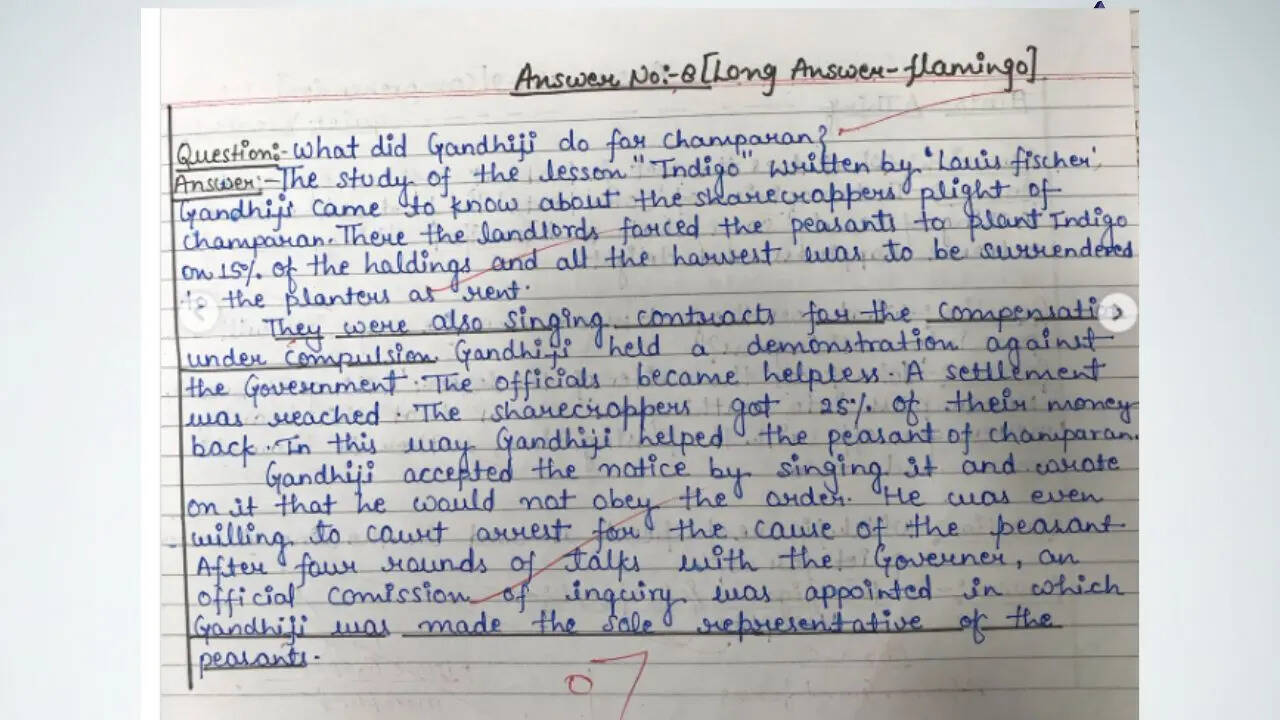 Answer No:-8[Long Answer-flamingo]
Question:-What did Gandhiji do for champaran?
Answer:-The study of the lesson "Indigo" written by 'Louis fischer'.
Gandhiji came to know about the sharecroppers plight of
champaran. There the landlords forced the peasants to plant Indigo
on 15% of the holdings and all the harvest was to be surrendered
the planters as rent.
They were also singing contracts for the
under compulsion. Gandhiji held a demonstration against
the Government. The officials became helpless. A settlement
was reached. The sharecroppers got 25% of their money
back. In this way Gandhiji helped the peasant of champaran.
Gandhiji accepted the notice by singing it and wrote
on it that he would not obey the order. He was even
willing to court arrest for the cause of the peasant
After four rounds of talks with the Governer, an
official comission of inquiry was appointed in which
Gandhiji was made the sole representative of the
peasants.
07